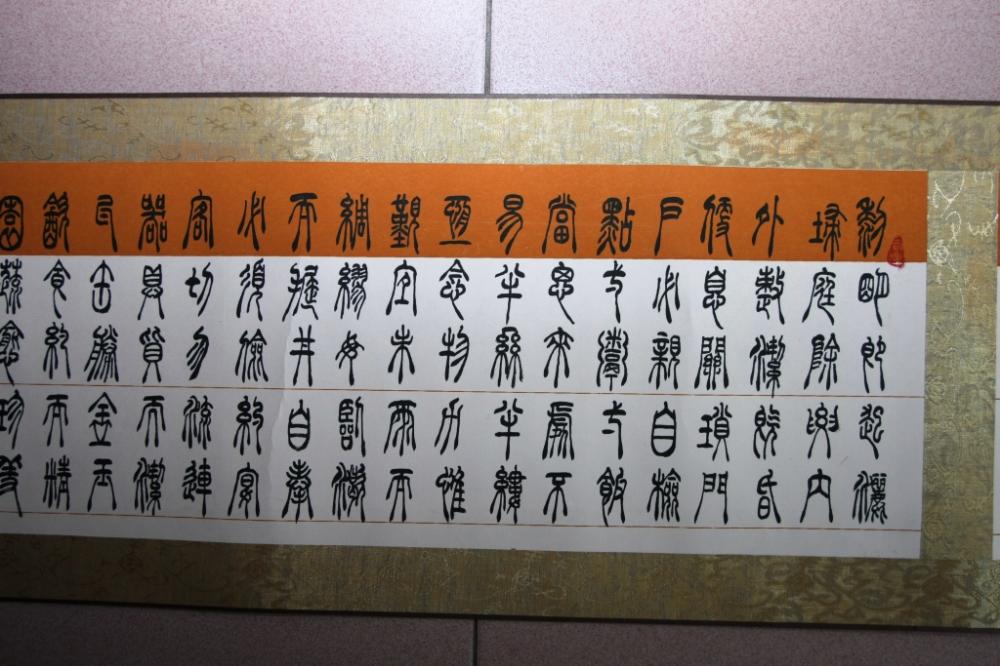 黎明即起灑
埽庭除要內
外整潔既昏
便息關鎖門
戶必親自檢
點一粥一飯
當思來處不
易半絲半縷
恆念物力惟
艱宜未雨而
綢繆毋臨渴
而掘井自奉
必須儉約宴
客切勿流連
器具質而潔
瓦缶勝金玉
飲食約而精
園蔬愈珍羞